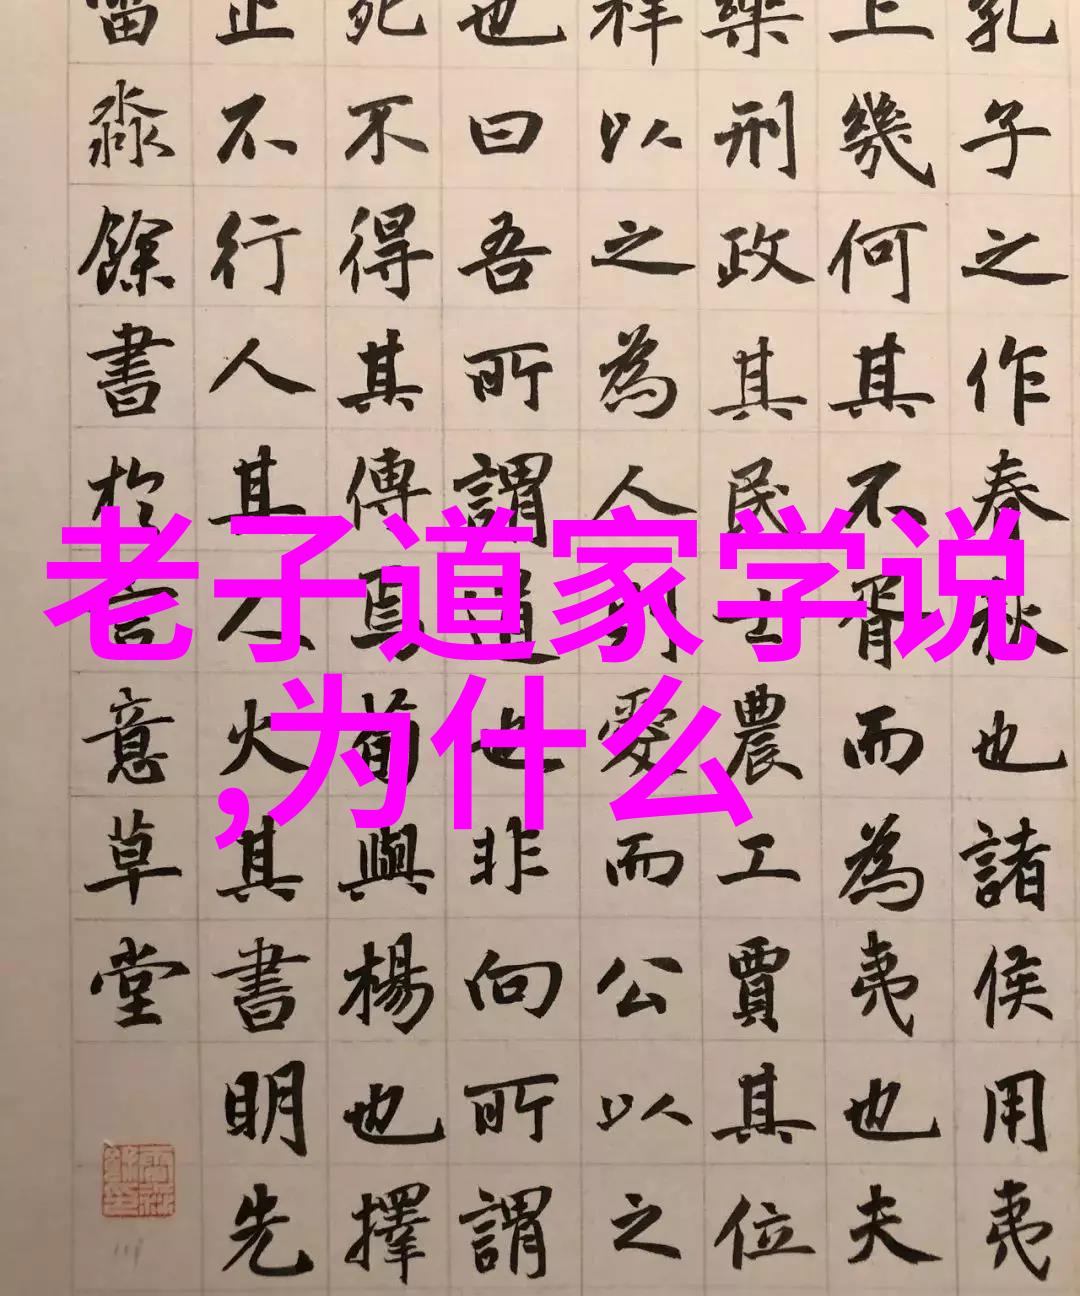 孔子之作春秋也諸侯用夷
上幾何其不胥而為夷也夫
樂刑政其民士農工賈其位
祥以之為人則愛而公以之
也曰吾所謂道也非向所謂
死不得其傳焉荀與楊也擇
止不行人其人火其書明先
淼餘書於意草堂
老子道家学说
,为什么